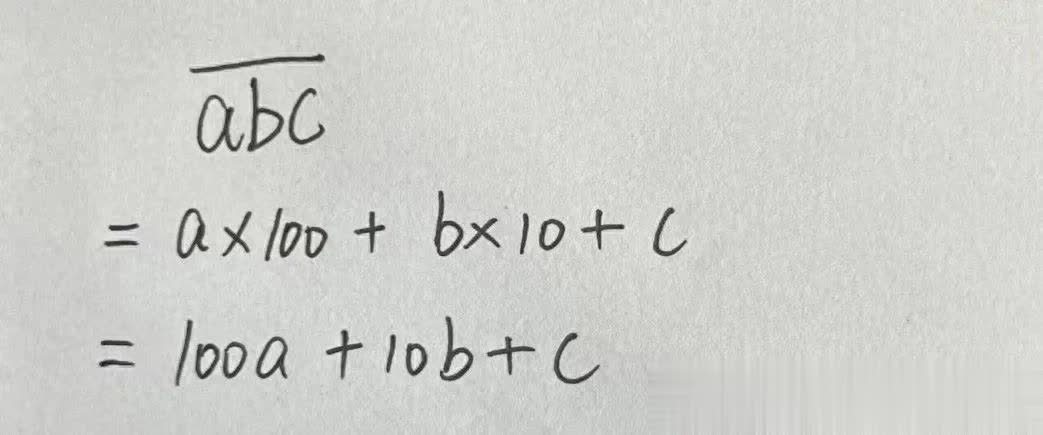 a̅b̅c̅
= a×100 + b×10 + c
= 100a + 10b + c